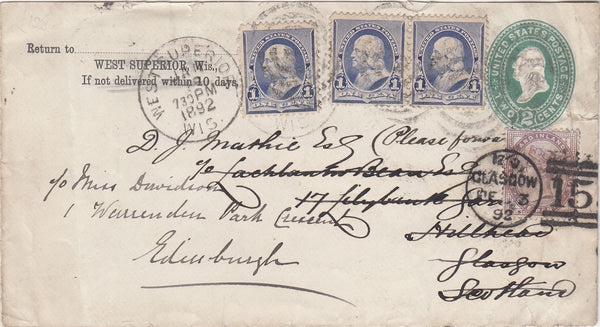 Return to
WEST SUPERIOR, Wis.
If not delivered within 10 days
WEST SUPERIOR
730 PM
1892
WIS.
1 ONE CENT 1
1 ONE CENT 1
1 ONE CENT 1
UNITED STATES POSTAGE
TWO 2 CENTS
D. J. Mathie Esq (Please forwa
c/o Lachlan Bean Esq
c/o Miss Davidson
17 Lilybank Gdns
1 Warrender Park Crescent
Hillhead
Edinburgh
Glasgow
Scotland
GLASGOW
DE 3
92
15